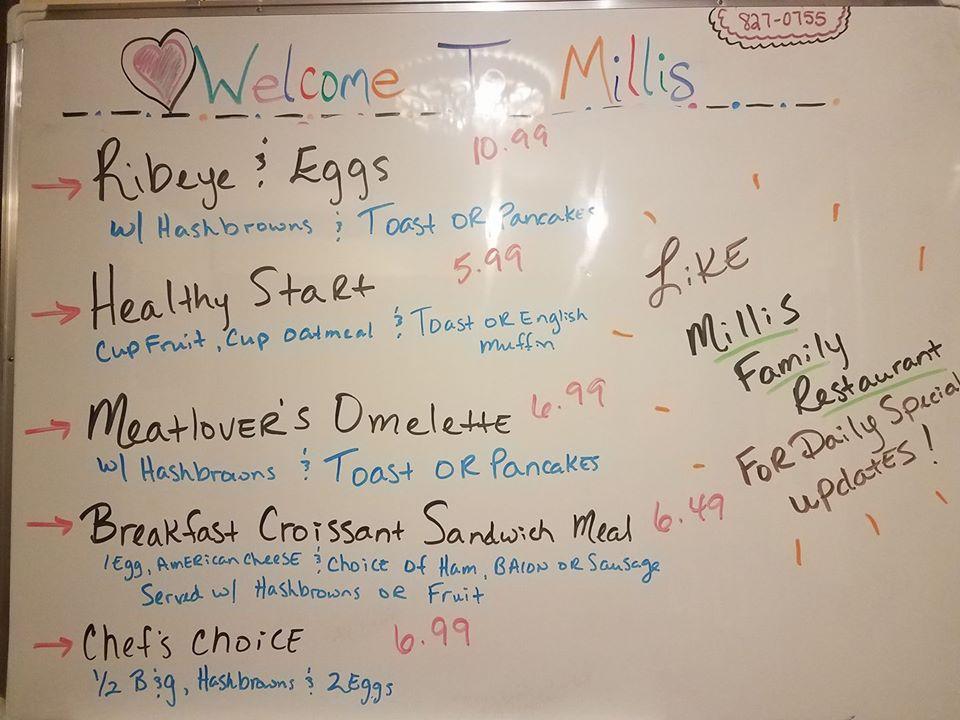 827-0755
Welcome To Millis
Ribeye & Eggs 10.99
w/ Hashbrowns & Toast OR Pancakes
Healthy Start 5.99
Cup Fruit, Cup Oatmeal & Toast OR English
Muffin
Meatlover's Omelette 6.99
w/ Hashbrowns & Toast OR Pancakes
Breakfast Croissant Sandwich Meal 6.49
1 Egg, American Cheese & Choice Of Ham, Bacon OR Sausage
Served w/ Hashbrowns OR Fruit
Chef's Choice 6.99
1/2 B&g, Hashbrowns & 2 Eggs
Like
Millis
Family
Restaurant
For Daily Special
updates!